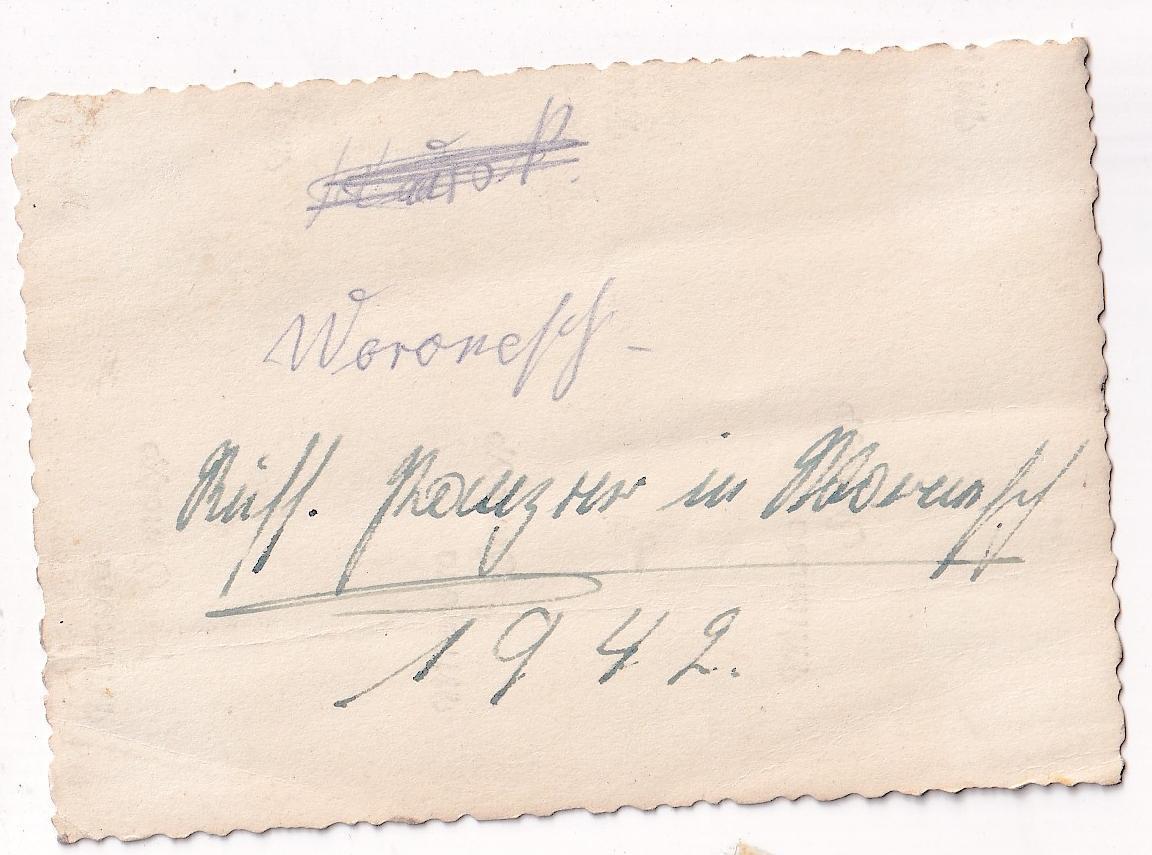 Woronesch -
Russ. Panzer in Woronesch
1942.